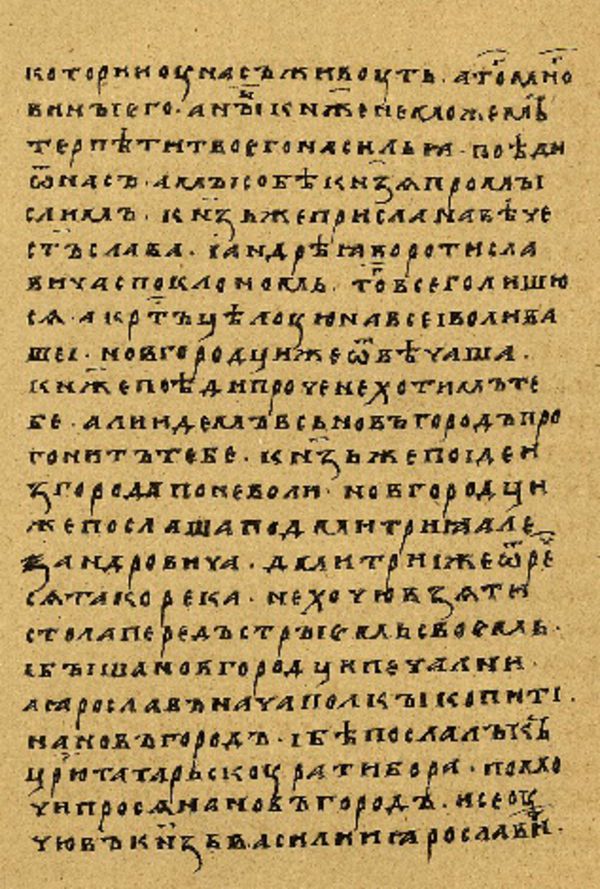 которииоу насъ живоуть · а т҃ои҃мно
винъı его · а нъı кн҃же не можемъ
терпѣти твоего насильꙗ · поѣди
ѿ насъ · а мъı собѣ кн҃зѧ промъı
слимъ · кн҃зь же присла на вѣче
ст҃ъслава · і андрѣꙗ воротисла
вича с поклономь · то всего лишю
сѧ · а кр҃тъ цѣлоую на всеі воли ва
шеі · новгородци же ѿвѣчаша ·
кн҃же поѣди проче не хотимъ те
бе · али идемъ всь новъгородъ про
гонитъ тебе · кн҃зь же поіде и
з города по неволи · новгородци
же послаша по дмитриꙗ але
ѯандровича · дмитріи же ѿре
сѧ тако река · не хочю взѧти
стола передъ стръıемь своемь ·
і бъıша новгородци печални ·
а ꙗрославъ нача полкъı копити
на новъгородъ · і бѣ послалъ къ
ц҃рю татарьскоу ратибора · помо
чи просѧ на новъгородъ · и се оу
чювъ кн҃зь василии ꙗрославич҃ ·